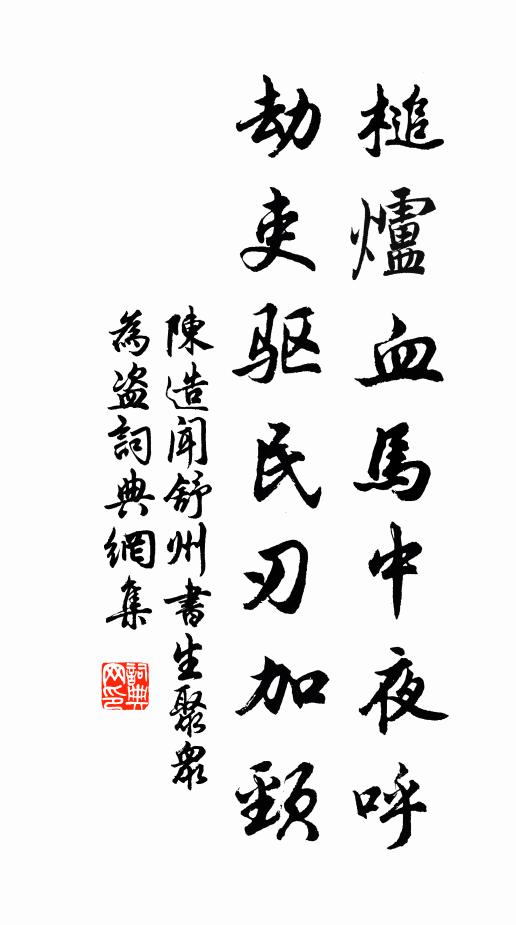 槌爐血馬中夜呼
劫吏驱民刃加頸
陳造闻舒州書生聚衆
為盗詞典網集
詞典网印